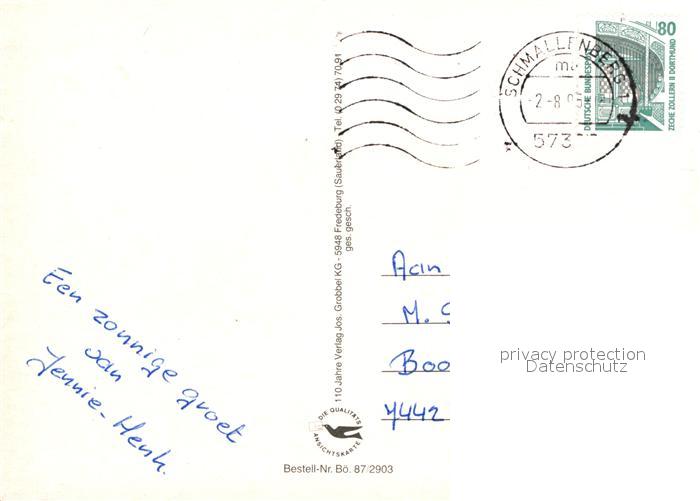 Een zonnige groet
van
Jennie-Henk.
110 Jahre Verlag Jos. Grobbel KG - 5948 Fredeburg (Sauerland) - Tel. (0 29 74) 70 91
ges. gesch.
DIE QUALITÄTS
ANSICHTSKARTE
Bestell-Nr. Bö. 87/2903
SCHMALLENBERG 1
573
80
DEUTSCHE BUNDESPOST
ZECHE ZOLLERN II DORTMUND
Aan
M.
Boo
7442
privacy protection
Datenschutz